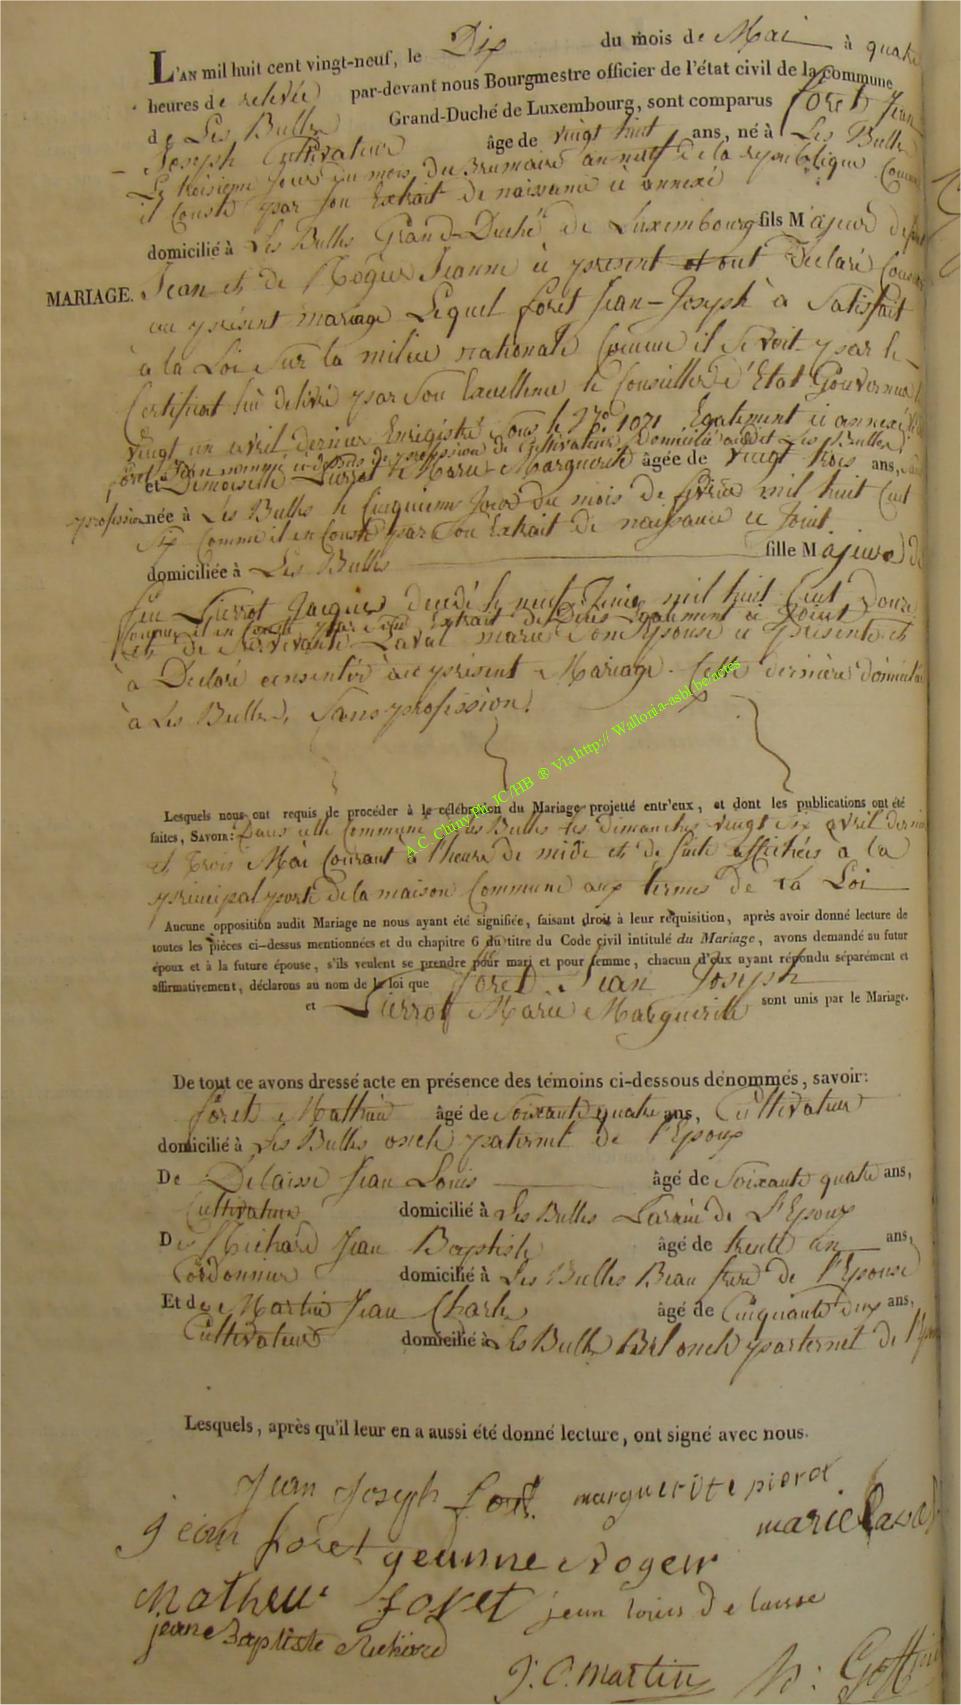 L'AN mil huit cent vingt-neuf, le Dix du mois de Mai à quatre
heures de relevée par-devant nous Bourgmestre officier de l'état civil de la commune
de Les Bulles Grand-Duché de Luxembourg, sont comparus foret Jean
Joseph Cultivateur âge de vingt huit ans, né à Les Bulles
Le troisieme jour du mois du Brumaire an neuf de la republique Comme
il Conste par son Extrait de naissance ci annexé
domicilié à Les Bulles Grand-Duché de Luxembourg fils Majeur de
MARIAGE. Jean et de Jeanne ci present et ont Declaré
au présent mariage Lequel forêt Jean-Joseph à Satisfait
à la Loi Sur la milice nationale Comme il Se voit par le
Certificat lui delivré par Son Excellence le Conseiller d'Etat Gouverneur
vingt un avril dernier Enregistré Sous le Nº 1071 Egalement ci annexé
foret Jean nommé ci dessus de profession de Cultivateur Domicilié audit Les Bulles
et Demoiselle Pierrot Marie Marguerite âgée de vingt trois ans, sans
profession née à Les Bulles le Cinquieme Jour du mois de fevrier mil huit Cent
Six Comme il en Conste par Son Extrait de naissance ci Joint
domiciliée à Les Bulles fille Majeure de
feu Pierrot Jacques decedé le neuf mil huit Cent Douze
Comme il en Conste par Son Extrait de Décès Egalement ci Joint
et de Survivante Laval marie Son Epouse ci présente et
à Declaré consentir au present Mariage. Cette derniere domiciliée
à Les Bulles, Sans profession.
A.C. Chiny Ph. JC/HB ® Via http:// Wallonia-asbl.be/actes
Lesquels nous ont requis de procéder à la célébration du Mariage projetté entr'eux, et dont les publications ont été
faites, SAVOIR: Dans cette Commune de Les Bulles les dimanches vingt Six avril dernier
et trois Mai Courant à l'heure de midi et de suite affichées à la
principal porte de la maison Commune aux termes de la Loi
Aucune opposition audit Mariage ne nous ayant été signifiée, faisant droit à leur réquisition, après avoir donné lecture de
toutes les pièces ci-dessus mentionnées et du chapitre 6 du titre du Code civil intitulé du Mariage, avons demandé au futur
époux et à la future épouse, s'ils veulent se prendre pour mari et pour femme, chacun d'eux ayant répondu séparément et
affirmativement, déclarons au nom de la loi que foret Jean Joseph
et Pierrot Marie Marguerite sont unis par le Mariage.
De tout ce avons dressé acte en présence des témoins ci-dessous dénommés, savoir:
forêt Mathieu âgé de Soixante quatre ans, Cultivateur
domicilié à Les Bulles oncle paternel de l'Epoux
De Delaisse Jean Louis âgé de Soixante quatre ans,
Cultivateur domicilié à Les Bulles Parain de L'Epoux
De Richard Jean Baptiste âgé de trente un ans,
Cordonnier domicilié à Les Bulles Beau frere de l'Epouse
Et de Martin Jean Charles âgé de Cinquante deux ans,
Cultivateur domicilié à Les Bulles Bel oncle parternel de
Lesquels, après qu'il leur en a aussi été donné lecture, ont signé avec nous.
Jean Joseph foret marguerite pierot
jean foret marie Laval
geanne Rogeir
Matheu foret jean louis De laisse
jean Baptiste Richard
J. C. martin